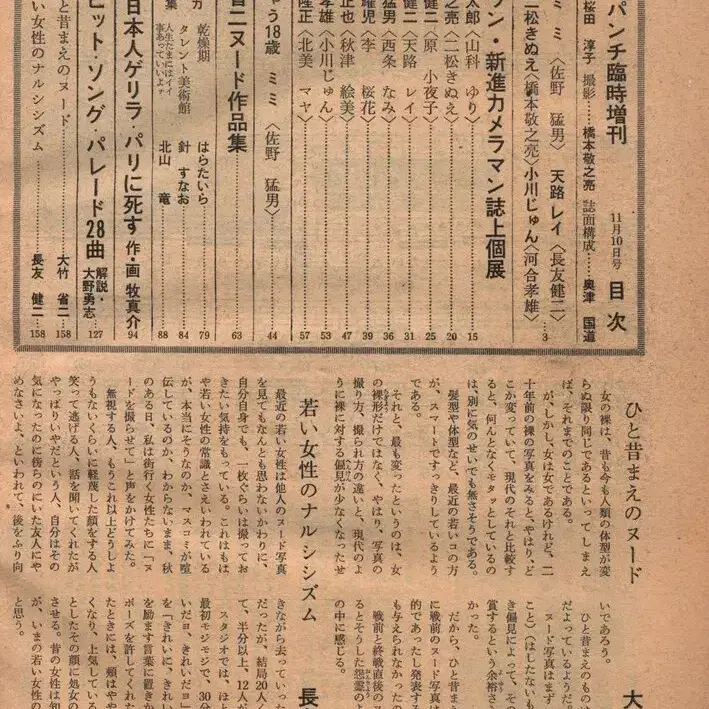 パンチ臨時増刊 11月10日号 目次
桜田 淳子 撮影……橋本敬之亮 誌面構成……奥津 国道
ミミ〈佐野 猛男〉 天路レイ〈長友健二〉
二松きぬえ〈橋本敬之亮〉小川じゅん〈河合孝雄〉……3
ン・新進カメラマン誌上個展
太郎〈山科 ゆり〉……15
之亮〈二松きぬえ〉……20
健二〈原 小夜子〉……25
健二〈天路 レイ〉……31
猛男〈西条 なみ〉……36
曜児〈李 桜花〉……39
正也〈秋津 絵美〉……47
孝雄〈小川じゅん〉……53
隆正〈北美 マヤ〉……57
ゃう18歳 ミミ〈佐野 猛男〉……44
省二ヌード作品集……63
乾燥期 はらたいら……79
タレント美術館 針 すなお……84
人生たまにはイイ事あっていいよナ 北山 竜……88
日本人ゲリラ・パリに死す 作・画 牧真介……94
ヒット・ソング パレード28曲 解説・大野勇志……127
ひと昔まえのヌード……大竹 省二……158
若い女性のナルシシズム……長友 健二……158
ひと昔まえのヌード
女の裸は、昔も今も人類の体型が変
らぬ限り同じであるといってしまえ
ば、それまでのことである。
が、しかし、女は女であるけれど、二
十年前の裸の写真をみると、やはり、ど
こか変っていて、現代のそれと比較す
ると、何んとなくモタッとしているの
は、別に気のせいでも無さそうである。
髪型や体型など、最近の若いコの方
が、スマートですっきりしているよう
である。
それと、最も変ったというのは、女
の裸形だけではなく、やはり、写真の
撮り方、撮られ方の違いと、現代のよ
うに裸に対する偏見が少なくなったせ
いであろう。
ひと昔まえのものは
だよっているようだ
ヌード写真はまず
こと）（はしたないも
き偏見によって、その
賞するという余裕さ
かった。
だから、ひと昔ま
に戦前のヌード写真
的であったし発表す
も与えられなかったの
戦前と終戦直後の
るとそうした怨霊の
の中に感じる。
大
若い女性のナルシシズム
最近の若い女性は他人のヌード写真
を見てもなんとも思わないかわりに、
自分自身でも、一枚ぐらいは撮ってお
きたい気持をもっている。これはもは
や若い女性の常識とさえいわれている
が、本当にそうなのか、マスコミが喧
伝しているのか、わからないまま、秋
のある日、私は街行く女性たちに「ヌ
ードを撮らせて」と声をかけてみた。
無視する人、もうこれ以上どうしよ
うもないくらいに軽蔑した顔をする人
笑って逃げる人、話を聞いてくれたが
やっぱりいやだという人、自分はその
気になったのに傍らのにいた友人にや
めなさいよ、といわれて、後をふり向
きながら去っていっ
だったが、結局20人
て、半分以上、12人が
スタジオでは、ほと
最初モジモジで、30分
いだヨ、きれいだヨ」
を「きれいに、きれい
を励ます言葉に置きか
ポーズを許してくれた
たときには、頬はや
くなり、上気している
としたその顔に処女の
させる。昔の女性は知
が、いまの若い女性
と思う。
長